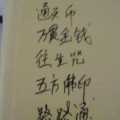 通天印
万贯金钱
往生咒
五方佛印
路路通